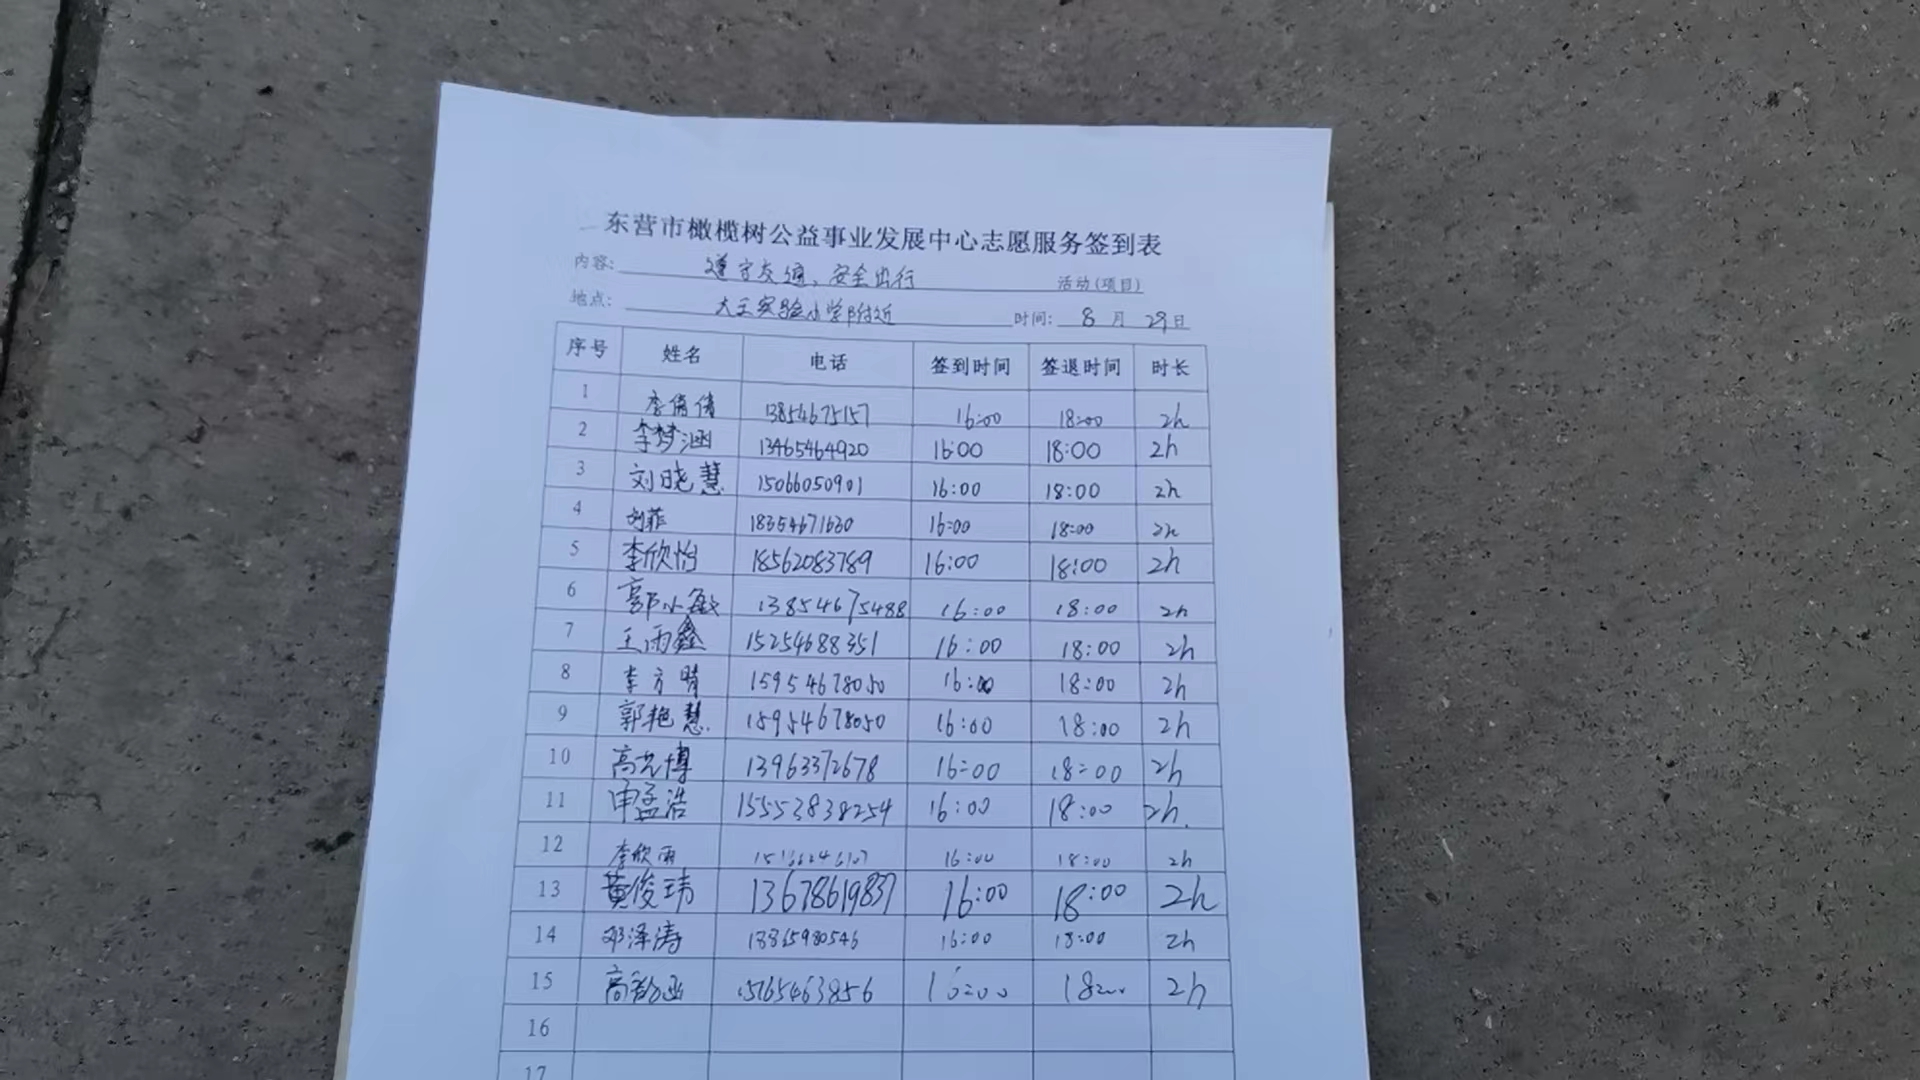 东营市橄榄树公益事业发展中心志愿服务签到表
内容: 遵守交通、安全出行 活动(项目)
地点: 大王实验小学附近 时间: 8 月 29 日
序号 姓名 电话 签到时间 签退时间 时长
1 李倩倩 13854675157 16:00 18:00 2h
2 李梦涵 13465464920 16:00 18:00 2h
3 刘晓慧 15066050901 16:00 18:00 2h
4 刘菲 18354671630 16:00 18:00 2h
5 李欣怡 18562083789 16:00 18:00 2h
6 郭小敏 13854675488 16:00 18:00 2h
7 王雨鑫 15254688351 16:00 18:00 2h
8 李方晴 15954678050 16:00 18:00 2h
9 郭艳慧 15954678050 16:00 18:00 2h
10 高光博 13963372678 16:00 18:00 2h
11 申孟浩 15553838254 16:00 18:00 2h.
12 李欣雨 16:00 18:00 2h
13 黄俊玮 13678619837 16:00 18:00 2h
14 邓泽涛 13365980546 16:00 18:00 2h
15 15165463856 16:00 18:00 2h
16
17